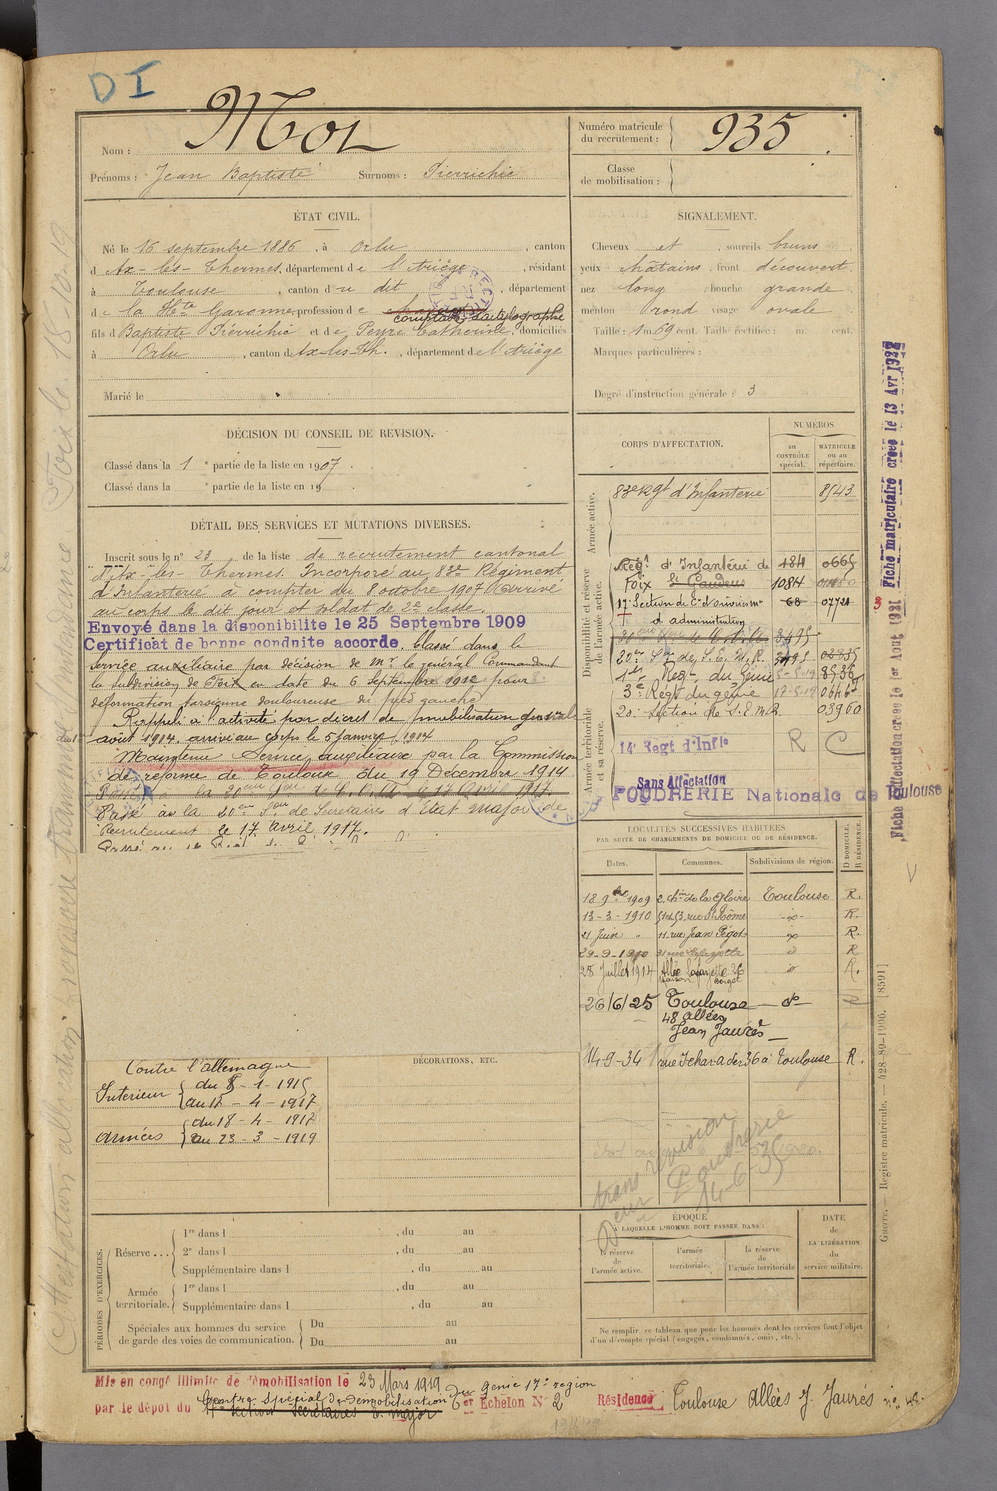 DI
Nom : Mol
Prénoms : Jean Baptiste Surnoms : Pierrichie
Numéro matricule du recrutement : 935
Classe de mobilisation :
ÉTAT CIVIL.
Né le 16 septembre 1886, à Orlu, canton
d'Ax-les-Thermes, département de l'Ariège, résidant
à Toulouse, canton du dit, département
de la Hte Garonne, profession de comptable dactylographe
fils de Baptiste Pierrichie et de Peyre Catherine, domiciliés
à Orlu, canton d'Ax-les-Th., département de l'Ariège
Marié le
SIGNALEMENT.
Cheveux et sourcils bruns
yeux châtains, front découvert
nez long, bouche grande
menton rond visage ovale
Taille : 1 m 69 cent. Taille rectifiée : m. cent.
Marques particulières :
Degré d'instruction générale : 3
DÉCISION DU CONSEIL DE REVISION.
Classé dans la 1e partie de la liste en 1907.
Classé dans la e partie de la liste en 19
DÉTAIL DES SERVICES ET MUTATIONS DIVERSES.
Inscrit sous le n° 23 de la liste de recrutement cantonal
d'Ax-les-Thermes. Incorporé au 83e Régiment
d'Infanterie à compter du 8 octobre 1907. Arrivé
au corps le dit jour et soldat de 2e classe.
Envoyé dans la disponibilité le 25 Septembre 1909
Certificat de bonne conduite accordé. Classé dans le
service auxiliaire par décision de Mr le général Commandant
la subdivision de Foix en date du 6 septembre 1912 pour
déformation tarsienne douloureuse du pied gauche
Rappelé à l'activité par décret de mobilisation générale
août 1914. arrivé au corps le 5 janvier 1914
Maintenu Service auxiliaire par la Commission
de réforme de Toulouse du 19 Décembre 1914
Passé à la 20e Son de Secrétaires d'État Major de
Recrutement le 17 avril 1917.
CORPS D'AFFECTATION.
NUMÉROS
au CONTRÔLE spécial.
MATRICULE ou au répertoire.
Armée active.
83e Rgt d'Infanterie 8543
Disponibilité et réserve de l'armée active.
Regt d'Infanterie de 184 0665
Foix St Gaudens 1084
17e Section de Cis d'ouvriers 68 07721
et administration
20e Son de S.E.M.R.
1er Regt du Génie 8536
3e Regt du génie 17-5-19
20e Section de S.E.M.R. 03960
Armée territoriale et sa réserve.
14e Regt d'Infie R C
Sans Affectation
POUDRERIE Nationale de Toulouse
LOCALITÉS SUCCESSIVES HABITÉES
PAR SUITE DE CHANGEMENTS DE DOMICILE OU DE RÉSIDENCE.
Dates. Communes. Subdivisions de région. D DOMICILE. R RÉSIDENCE.
18 9bre 1909 2 ch. de la Gloire Toulouse R.
13-3-1910 rue St Rôme -o- R.
21 Juin " 11 rue Jean Pégot R.
29-9-1910 rue Lafayette R
28 Juillet 1914 Allée Lafayette 26 R.
26/6/25 Toulouse
48 allées
Jean Jaurès
14-9-34 36 à Toulouse R.
Contre l'allemagne
Intérieur du 5-1-1915
au 17-4-1917
armées du 18-4-1917
au 23-3-1919
DÉCORATIONS, ETC.
trans révision
Poudrerie
14-6-35
PÉRIODES D'EXERCICES.
Réserve...
1re dans l , du au
2e dans l , du au
Supplémentaire dans l , du au
Armée territoriale.
1re dans l , du au
Supplémentaire dans l , du au
Spéciales aux hommes du service de garde des voies de communication.
Du au
Du au
ÉPOQUE
À LAQUELLE L'HOMME DOIT PASSER DANS :
la réserve de l'armée active.
l'armée territoriale.
la réserve de l'armée territoriale
DATE de LA LIBÉRATION du service militaire.
Ne remplir ce tableau que pour les hommes dont les services font l'objet
d'un décompte spécial (engagés, condamnés, omis, etc.).
Mis en congé illimité de démobilisation le 23 Mars 1919
par le dépôt du Centre spécial de démobilisation du Génie 17e region
er Echelon N° 2 Résidence Toulouse Allées J. Jaurès n° 48.
Fiche d'affectation créée le 1er Août 1921 Fiche matriculaire créée le 13 Avr 1932
Guerre. — Registre matricule. — 428-89-1906. [8591]